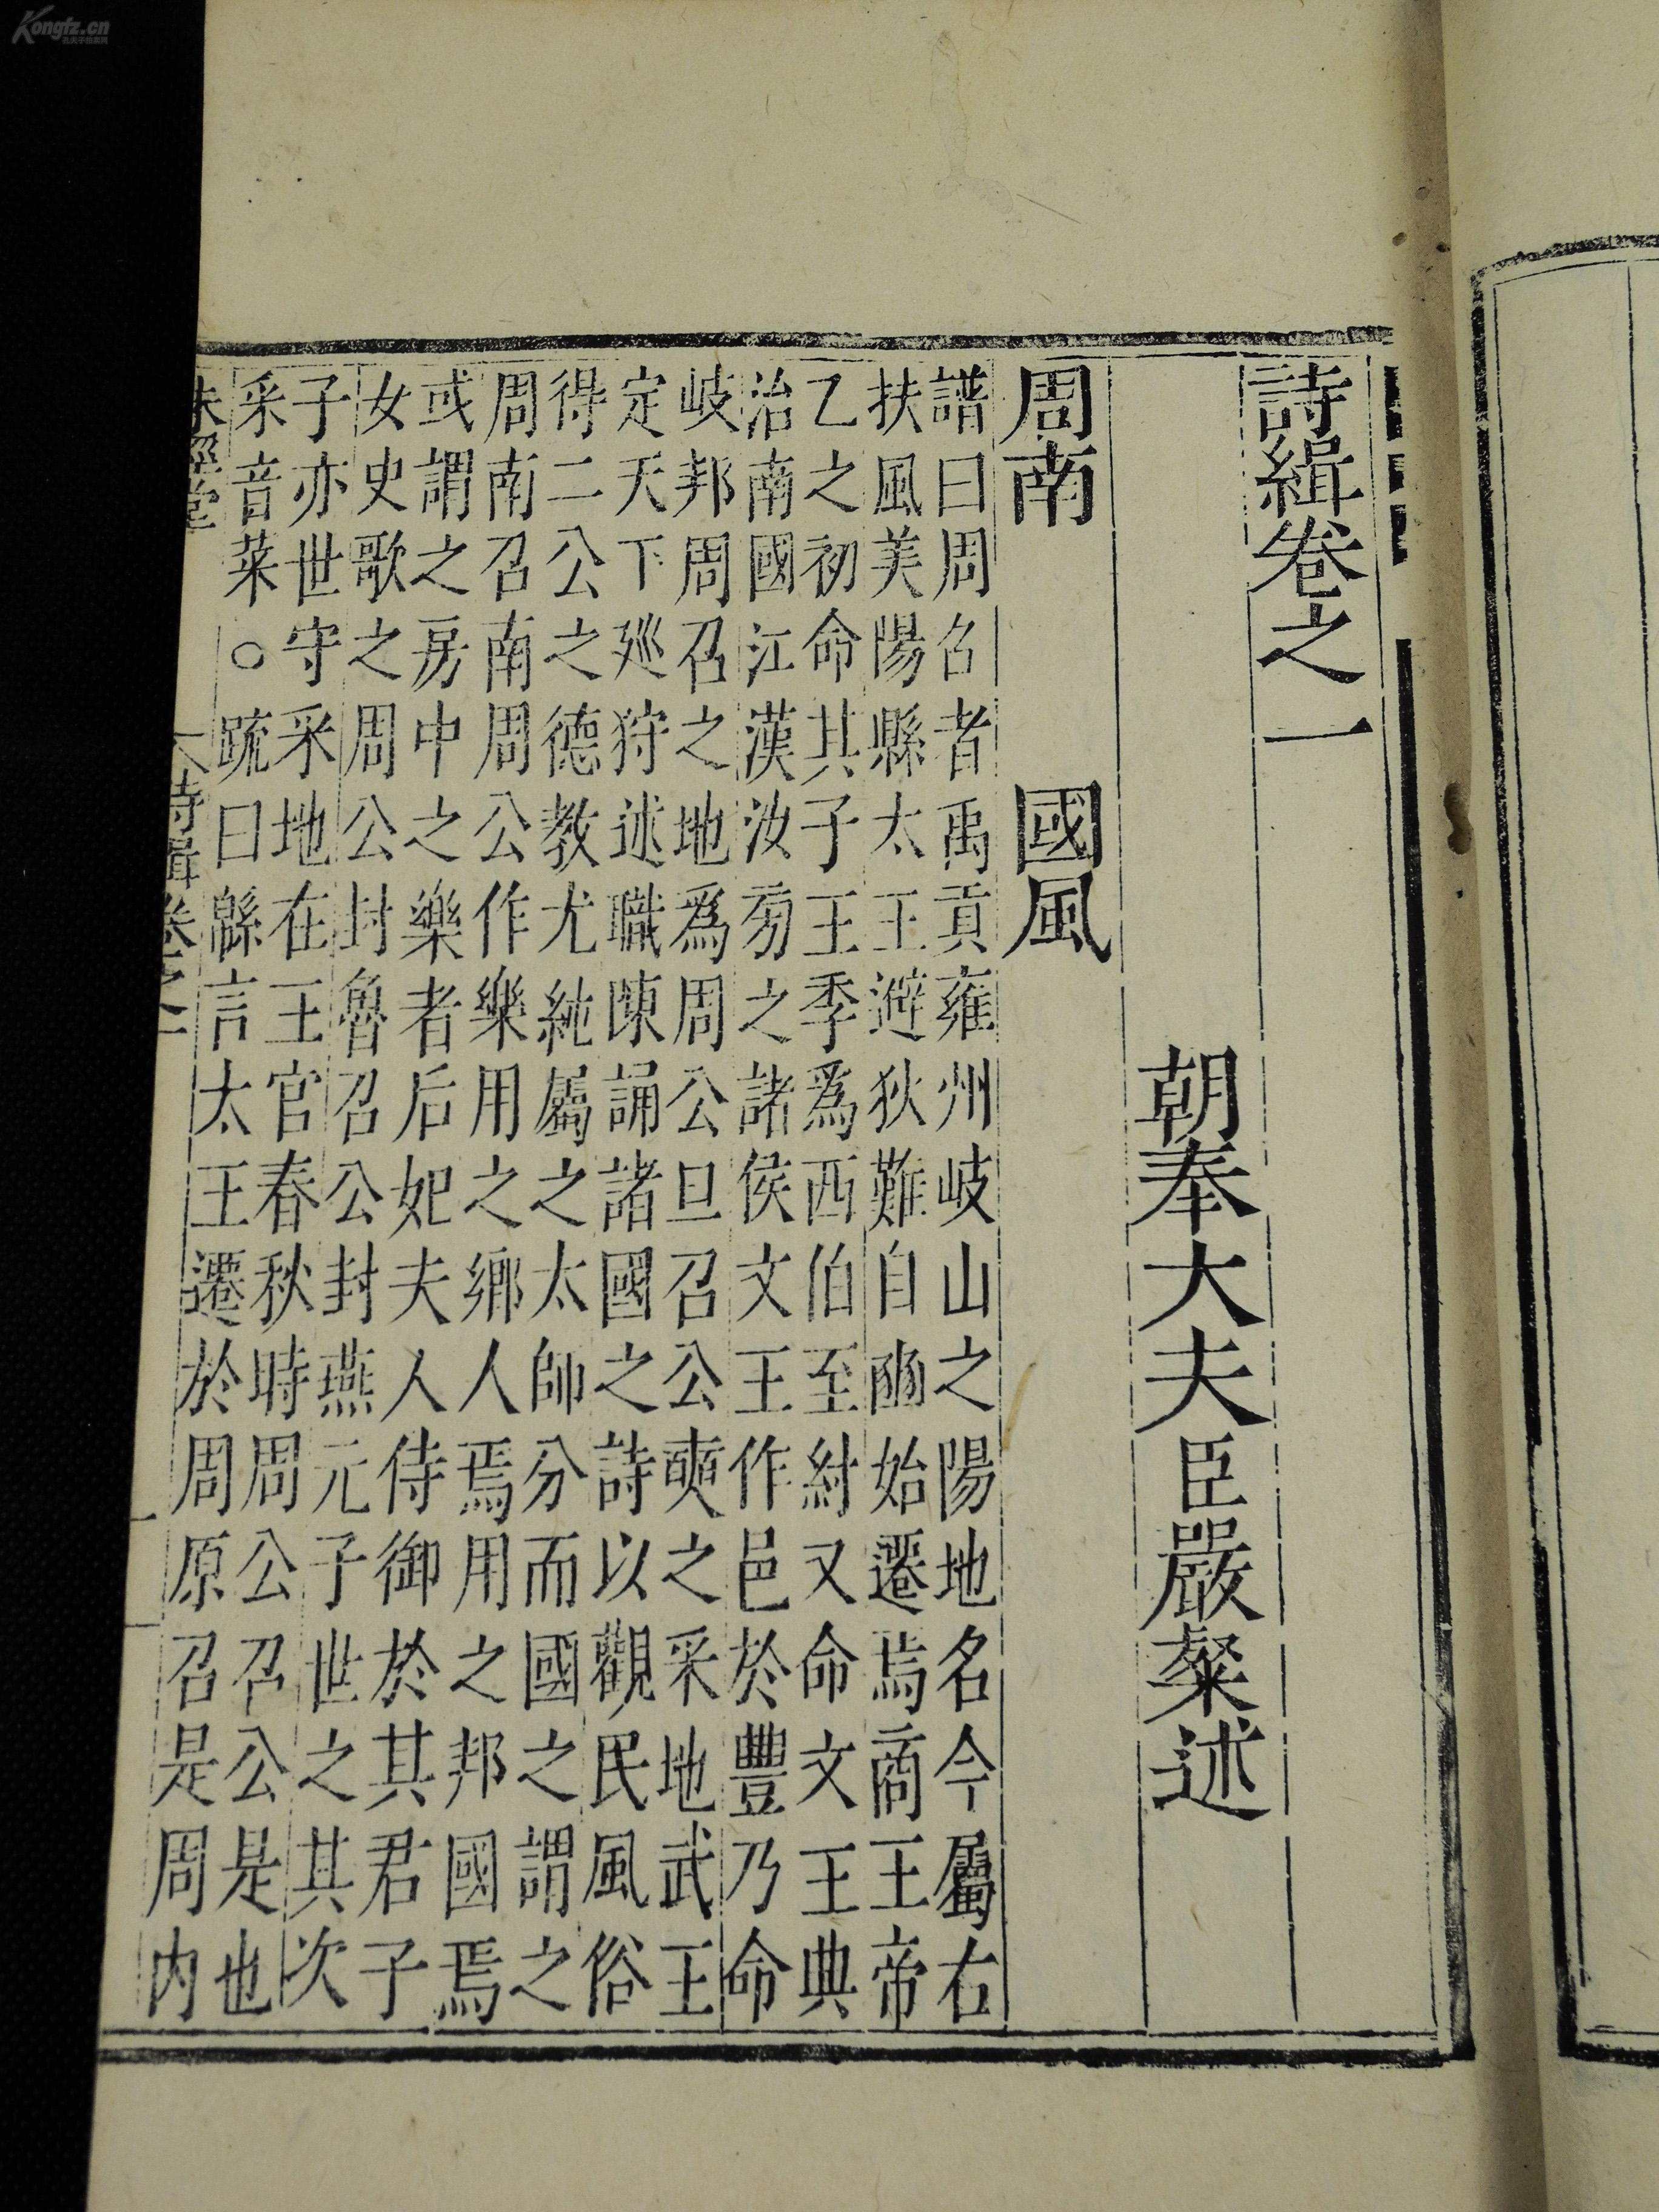 Kongfz.cn
詩緝卷之一
朝奉大夫臣嚴粲述
周南 國風
譜曰周召者禹貢雍州岐山之陽地名今屬右
扶風美陽縣太王避狄難自豳始遷焉商王帝
乙之初命其子王季爲西伯至紂又命文王典
治南國江漢汝旁之諸侯文王作邑於豐乃命
岐邦周召之地爲周公旦召公奭之采地武王
定天下廵狩述職陳誦諸國之詩以觀民風俗
得二公之德教尤純屬之太師分而國之謂之
周南召南周公作樂用之鄉人焉用之邦國焉
或謂之房中之樂者后妃夫人侍御於其君子
女史歌之周公封魯召公封燕元子世之其次
子亦世守采地在王官春秋時周公召公是也
采音菜○疏曰緜言太王遷於周原召是周內
詩緝卷之一